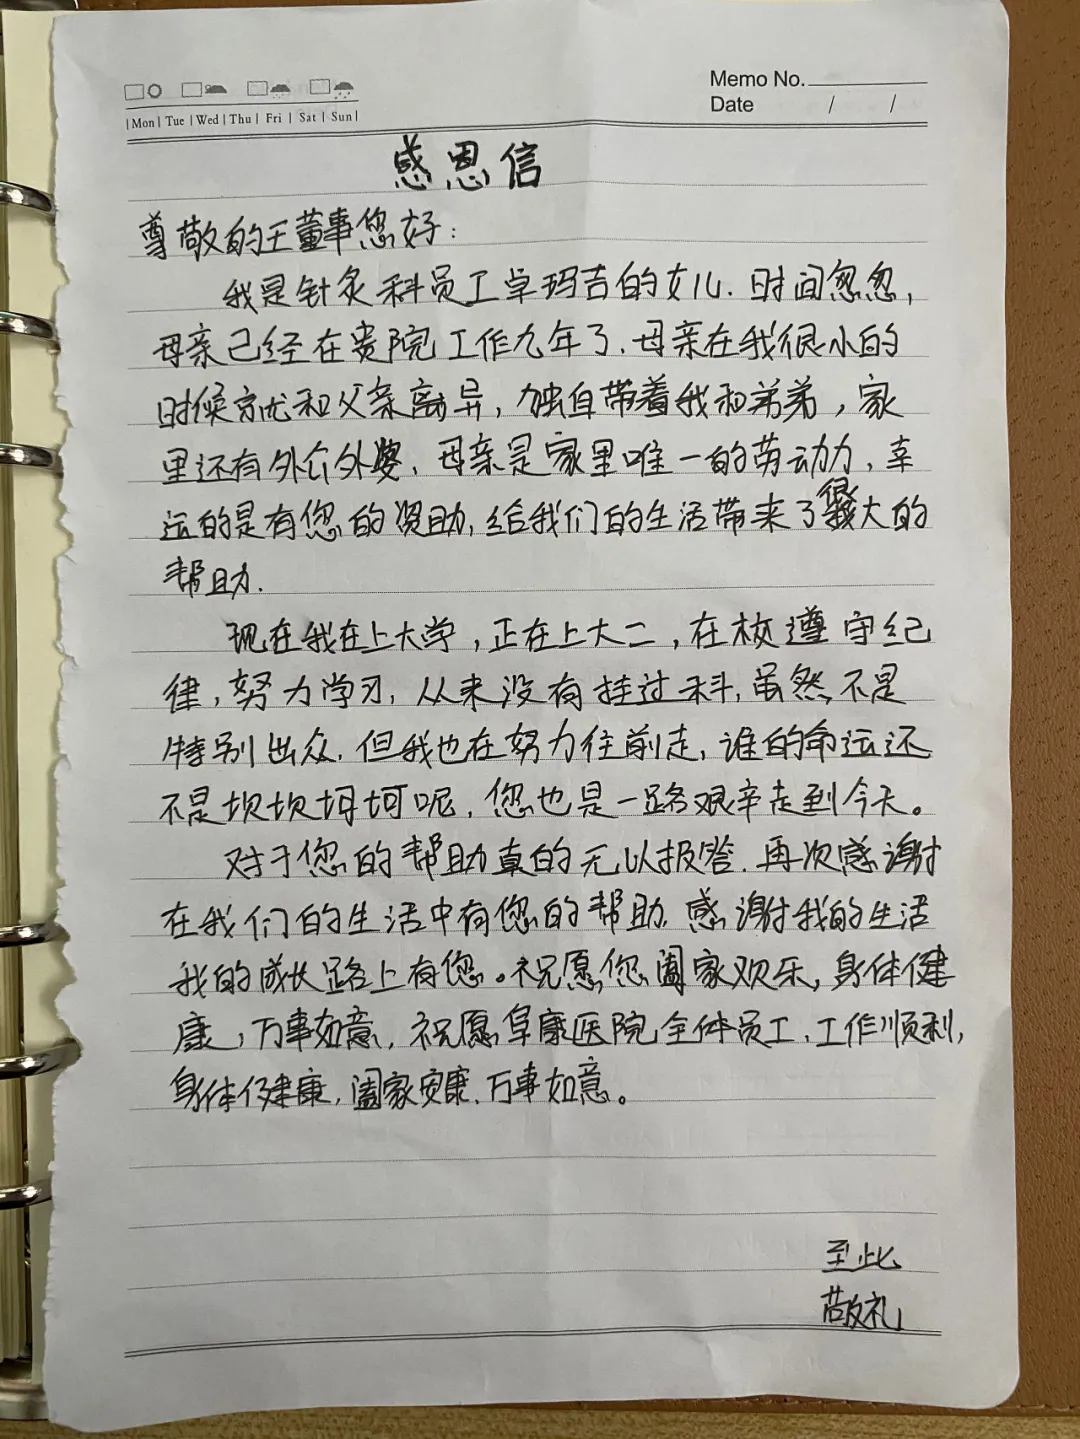 Memo No.
Date / /
Mon Tue Wed Thu Fri Sat Sun
感恩信
尊敬的王董事您好:
我是针灸科员工卓玛吉的女儿.时间忽忽,
母亲已经在贵院工作九年了.母亲在我很小的
时候就和父亲离异,独自带着我和弟弟,家
里还有外公外婆.母亲是家里唯一的劳动力,幸
运的是有您的资助,给我们的生活带来了很大的
帮助.
现在我在上大学,正在上大二,在校遵守纪
律,努力学习,从来没有挂过科,虽然不是
特别出众,但我也在努力往前走,谁的命运还
不是坎坎坷坷呢,您也是一路艰辛走到今天。
对于您的帮助真的无以报答.再次感谢
在我们的生活中有您的帮助,感谢我的生活
我的成长路上有您。祝愿您阖家欢乐,身体健
康,万事如意,祝愿阜康医院全体员工,工作顺利,
身体健康,阖家安康,万事如意。
至此
敬礼